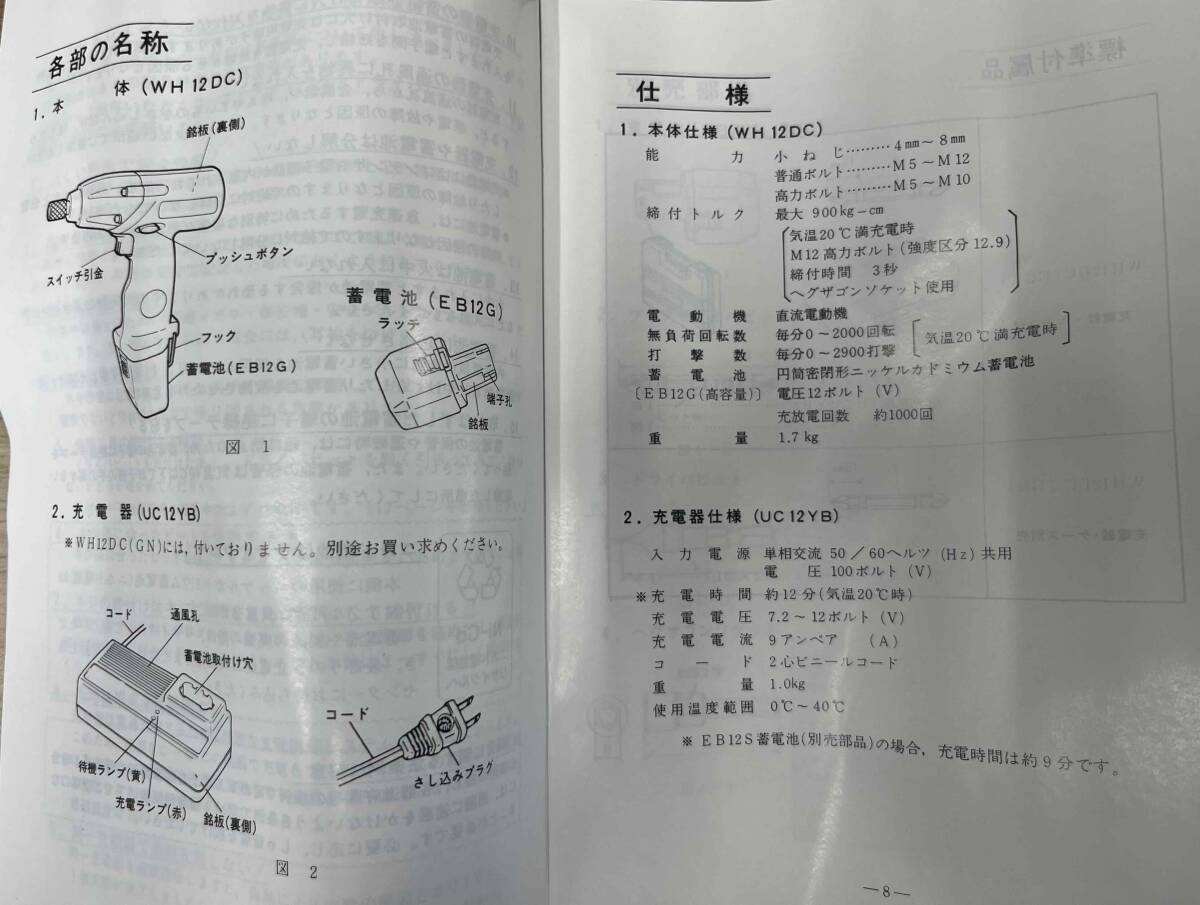 各部の名称
1. 本 体 (WH 12DC)
銘板(裏側)
スイッチ引金
プッシュボタン
フック
蓄電池(EB12G)
蓄電池(EB12G)
ラッチ
端子孔
銘板
図 1
2. 充電器(UC12YB)
※WH12DC(GN)には,付いておりません。別途お買い求めください。
コード
通風孔
蓄電池取付け穴
待機ランプ(黄)
充電ランプ(赤)
銘板(裏側)
コード
さし込みプラグ
図 2
標準付属品
仕様
1. 本体仕様 (WH 12DC)
能力 小ねじ………4㎜～8㎜
普通ボルト………M5～M12
高力ボルト………M5～M10
締付トルク 最大 900kg-cm
気温20℃満充電時
M12高力ボルト(強度区分12.9)
締付時間 3秒
ヘグザゴンソケット使用
電動機 直流電動機
無負荷回転数 毎分0～2000回転
打撃数 毎分0～2900打撃
[気温20℃満充電時]
蓄電池 円筒密閉形ニッケルカドミウム蓄電池
〔EB12G(高容量)〕 電圧12ボルト(V)
充放電回数 約1000回
重量 1.7kg
2. 充電器仕様 (UC12YB)
入力電源 単相交流 50/60ヘルツ(Hz)共用
電圧100ボルト(V)
※充電時間 約12分(気温20℃時)
充電電圧 7.2～12ボルト(V)
充電電流 9アンペア (A)
コード 2心ビニールコード
重量 1.0kg
使用温度範囲 0℃～40℃
※ EB12S蓄電池(別売部品)の場合,充電時間は約9分です。
—8—